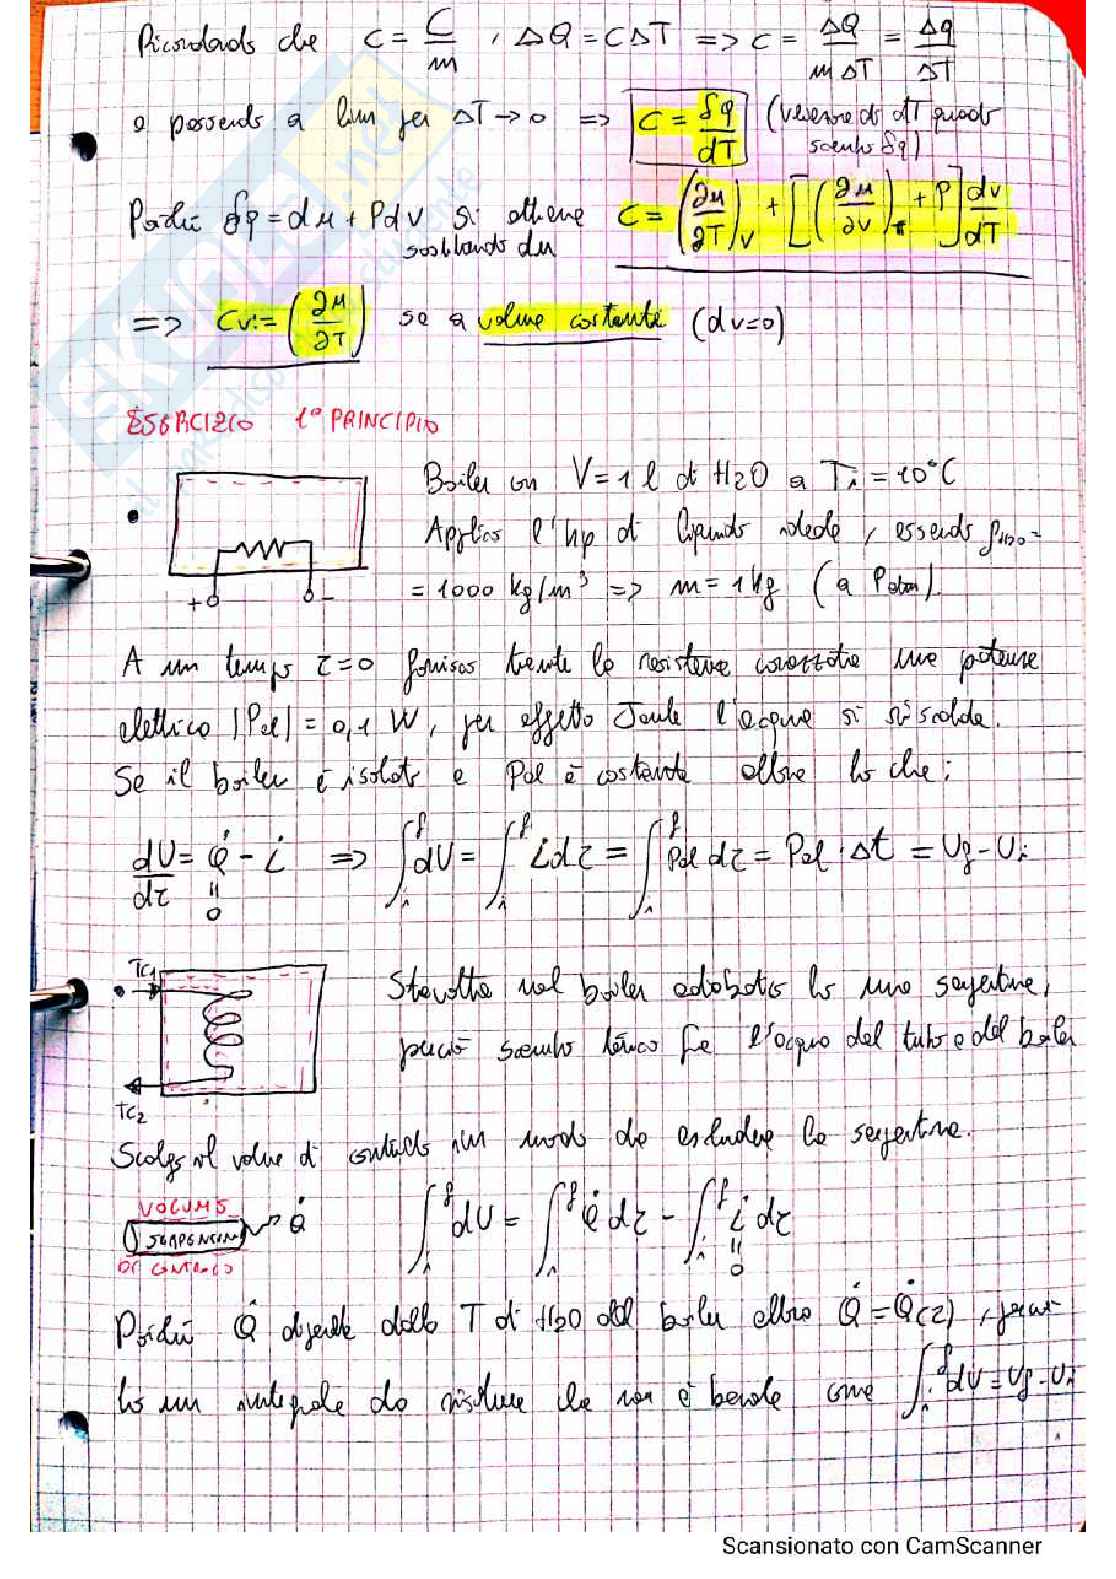 Ricordando che c = C/m , ΔQ = CΔT => c = ΔQ/(mΔT) = Δq/ΔT
e passando a lim per ΔT → 0 => c = δq/dT (verserò di dT quando
scambio δq)
Poichè δq = du + Pdv si ottiene c = (∂u/∂T)v + [(∂u/∂v)T + P] dv/dT
sostituendo du
=> Cv := (∂u/∂T) se a volume costante (dv=0)
ESERCIZIO 1° PRINCIPIO
Boiler con V = 1 l di H2O a Ti = 10°C
Applico l'hp di liquido ideale, essendo ρH2O =
= 1000 kg/m³ => m = 1 kg (a Patm)
+ -
A un tempo τ=0 fornisco tramite la resistenza una potenza
elettrica |Pel| = 0,1 W, per effetto Joule l'acqua si riscalda.
Se il boiler è isolato e Pel è costante allora ho che:
dU/dτ = Q̇ - L̇ => ∫ᵢᶠ dU = ∫ᵢᶠ L̇dτ = ∫ᵢᶠ Pel dτ = Pel · Δt = Uf - Ui
0
TC1
Stavolta nel boiler adiabatico ho una serpentina,
perciò scambio termico fra l'acqua del tubo e del boiler
TC2
Scelgo il volume di controllo in modo da escludere la serpentina.
VOLUME
SERPENTINA Q̇ ∫ᵢᶠ dU = ∫ᵢᶠ Q̇ dτ - ∫ᵢᶠ L̇ dτ
DI CONTROLLO 0
Poichè Q̇ dipende dalla T di H2O del boiler allora Q̇ = Q̇(τ)
ho un integrale da risolvere che non è banale come ∫ᵢᶠ dU = Uf - Ui
Scansionato con CamScanner